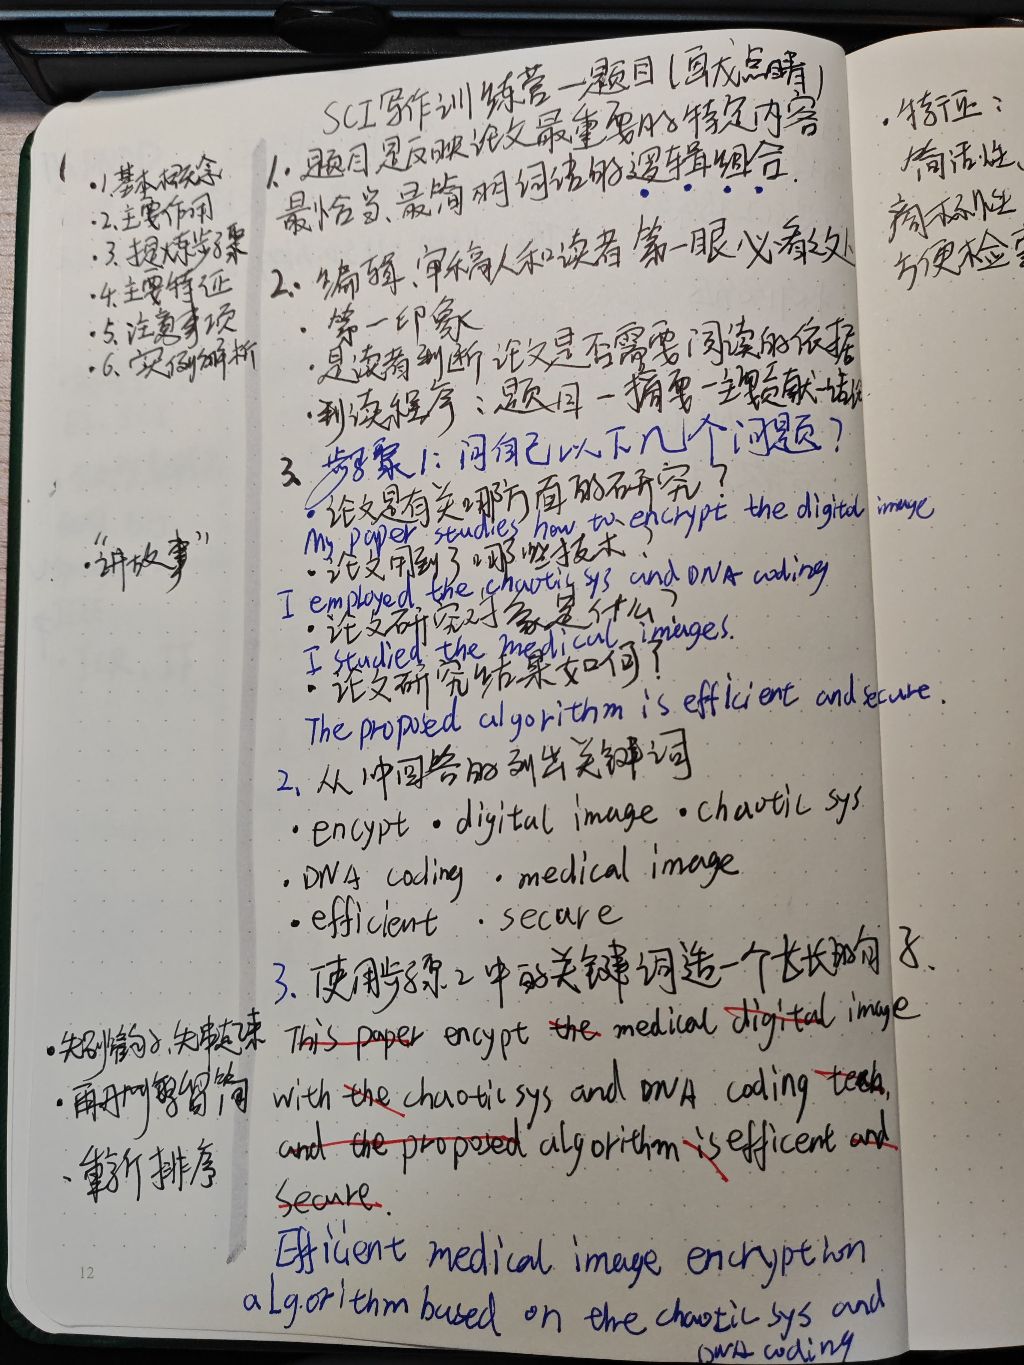 SCI写作训练营一题目(画龙点睛)
1. 题目是反映论文最重要的特定内容
最恰当、最简明词语的逻辑组合.
2. 编辑、审稿人和读者 第一眼必看之处
· 第一印象
· 是读者判断论文是否需要阅读的依据
· 判读程序:题目一摘要一主要贡献一结论
3. 步骤1:问自己以下几个问题?
· 论文是有关哪方面的研究?
My paper studies how to encrypt the digital image
· 论文用到了哪些技术?
I employed the chaotic sys and DNA coding
· 论文研究对象是什么?
I studied the medical images.
· 论文研究结果如何?
The proposed algorithm is efficient and secure.
2. 从1中回答的列出关键词
· encypt · digital image · chaotic sys
· DNA coding · medical image
· efficient · secure
3. 使用步骤2中的关键词造一个长长的句子.
This paper encypt the medical digital image
with the chaotic sys and DNA coding tech,
and the proposed algorithm is efficent and
secure.
Efficient medical image encryption
algorithm based on the chaotic sys and
DNA coding
· 1.基本概念
· 2.主要作用
· 3.提炼步骤
· 4.主要特征
· 5.注意事项
· 6.实例解析
· "讲故事"
· 先
· 再
· 重新排序
12
· 特征:
简洁性、
商标性
方便检索